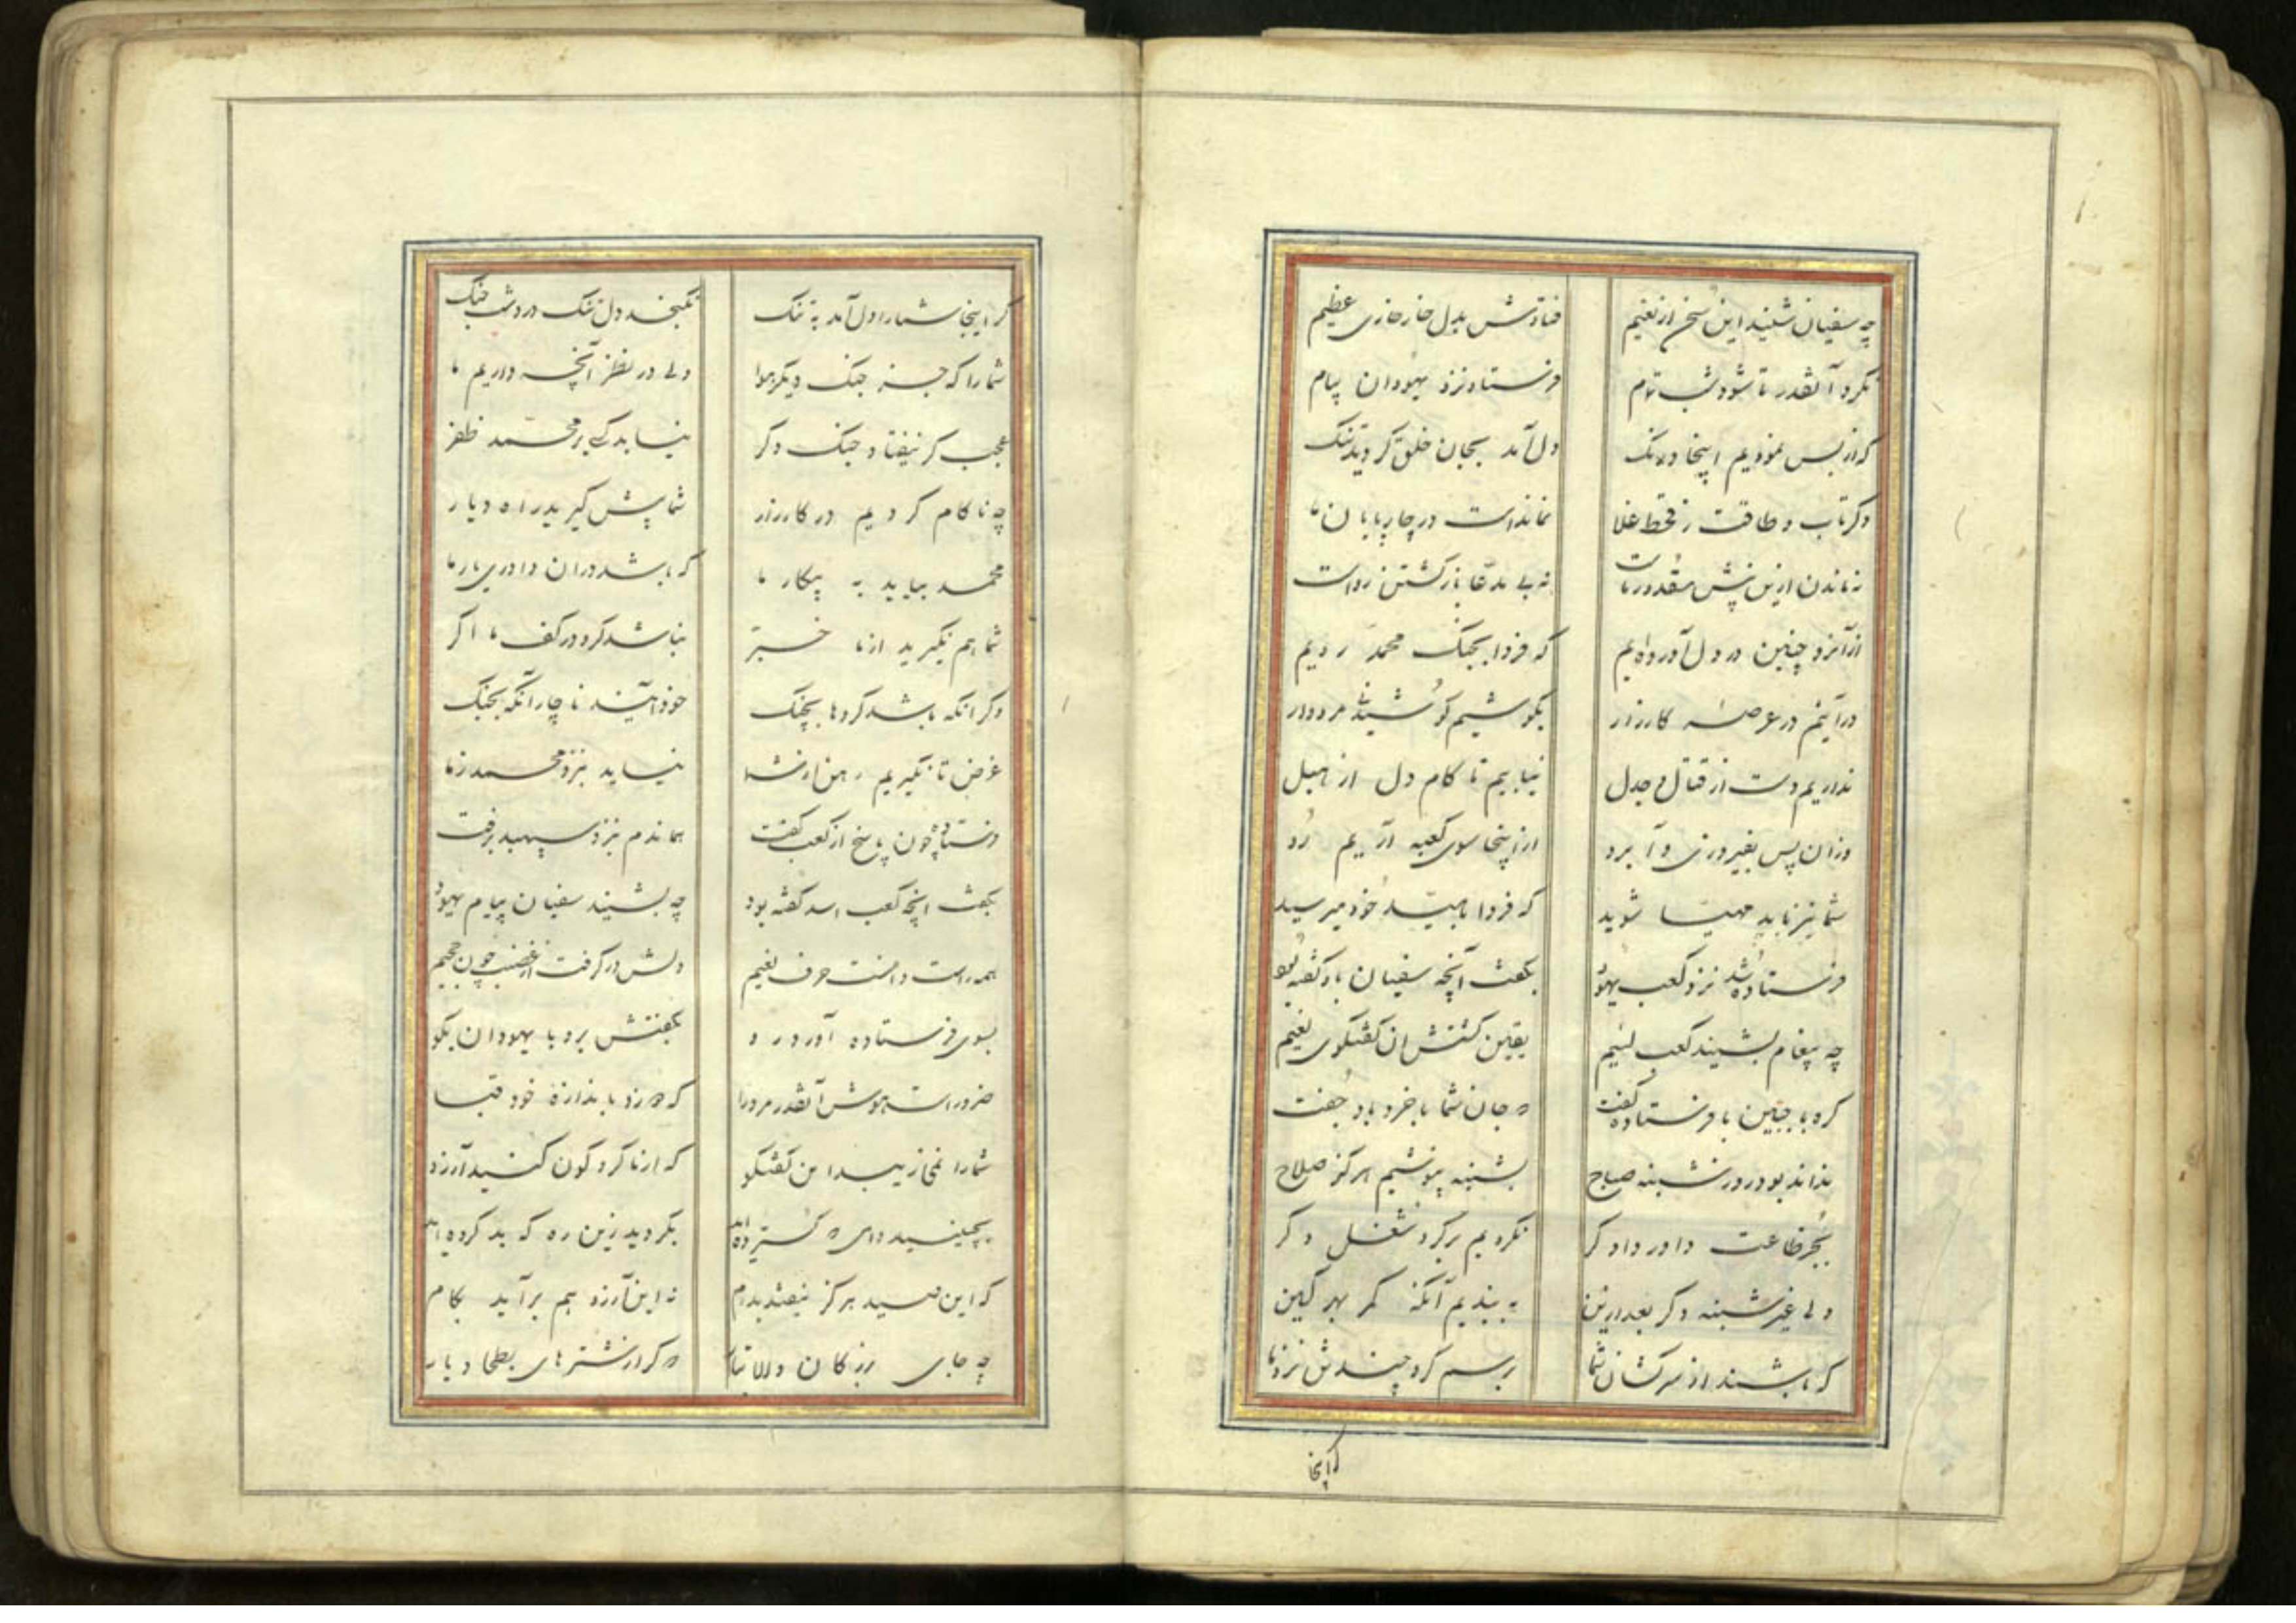 چه سفیان شنید این سخن از نعیم فتادش بدل خار خاری عظیم
نکرد آنقدر تا شود شب تمام فرستاد نزد یهودان پیام
که از بس نمودیم اینجا درنگ دل آمد بجان خلق گردید تنگ
دگر تاب و طاقت ز قحط غلا نماندست در چارپایان ما
نه ماندن ازین پیش مقدور ماست نه بی مدعا بازگشتن رواست
از آنرو چنین در دل آورده‌ایم که فردا بجنگ محمد رویم
درآئیم در عرصه کارزار بکوشیم کوشیدنی مردوار
نداریم دست از قتال و جدل نیابیم تا کام دل از هبل
وزان پس بفیروزی و آبرو از اینجا سوی کعبه آریم رو
شما نیز باید مهیا شوید که فردا بامید خود میرسید
فرستاده شد نزد کعب یهود بگفت آنچه سفیان باو گفته بود
چه پیغام بشنید کعب لئیم یقین گشتش آن گفتگوی نعیم
گره بر جبین با فرستاده گفت که جان شما با خرد باد جفت
بدانید بود روز شنبه صباح بشنبه نپوشیم هرگز سلاح
بجز طاعت داور دادگر نگردیم بر گرد شغل دگر
ولی غیر شنبه دگر بعد ازین به بندیم آنگه کمر بهر کین
که باشند از سرکشان شما برسم گرو چند تن نزد ما
که اینجا
گر اینجا شما را دل آمد به تنگ نگنجد دل تنگ در دشت جنگ
شما را که جز جنگ دیگر هوا ولی در نظر آنچه داریم ما
عجب گر نیفتاد جنگ دگر نیابد کسی بر محمد ظفر
چه ناکام گردیم در کارزار شما پیش گیرید راه دیار
محمد بیاید به پیکار ما که باشد دران داوری یار ما
شما هم نگیرید از ما خبر نباشد گرو در کف ما اگر
وگر آنکه باشد گروها بچنگ خود آئید ناچار آنگه بجنگ
غرض تا نگیریم رهن از شما نیاید نبرد محمد ز ما
فرستاده چون پاسخ از کعب گفت هماندم بنزد سپهبد برفت
بگفت آنچه کعب اسد گفته بود چه بشنید سفیان پیام یهود
همه راست دانست حرف نعیم دلش در گرفت از غضب چون جحیم
بسوی فرستاده آورد رو بگفتش برو با یهودان بگو
ضرور است هوش آنقدر مرد را که دوزد باندازه خود قبا
شما را نمی‌زیبد این گفتگو که از ما گروگون کنید آرزو
بچینید دامی که گسترده‌اید بگردید زین ره که بد کرده‌اید
که این صید هرگز نیفتد بدام نه این آرزو هم برآید بکام
چه جای بزرگان والا تبار که گر از شترهای بطحا دیار